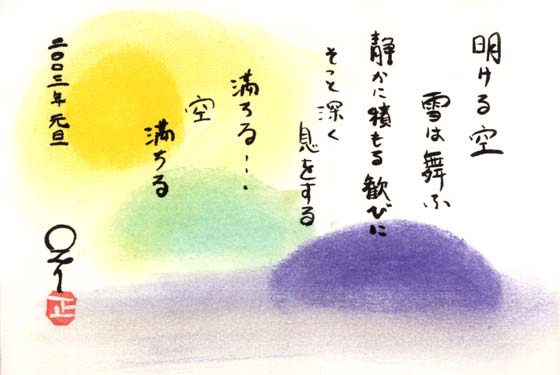 明ける空
雪は舞ふ
静かに積もる歓びに
そっと深く
息をする
満ちる…
空
満ちる
二〇〇三年 元旦
正